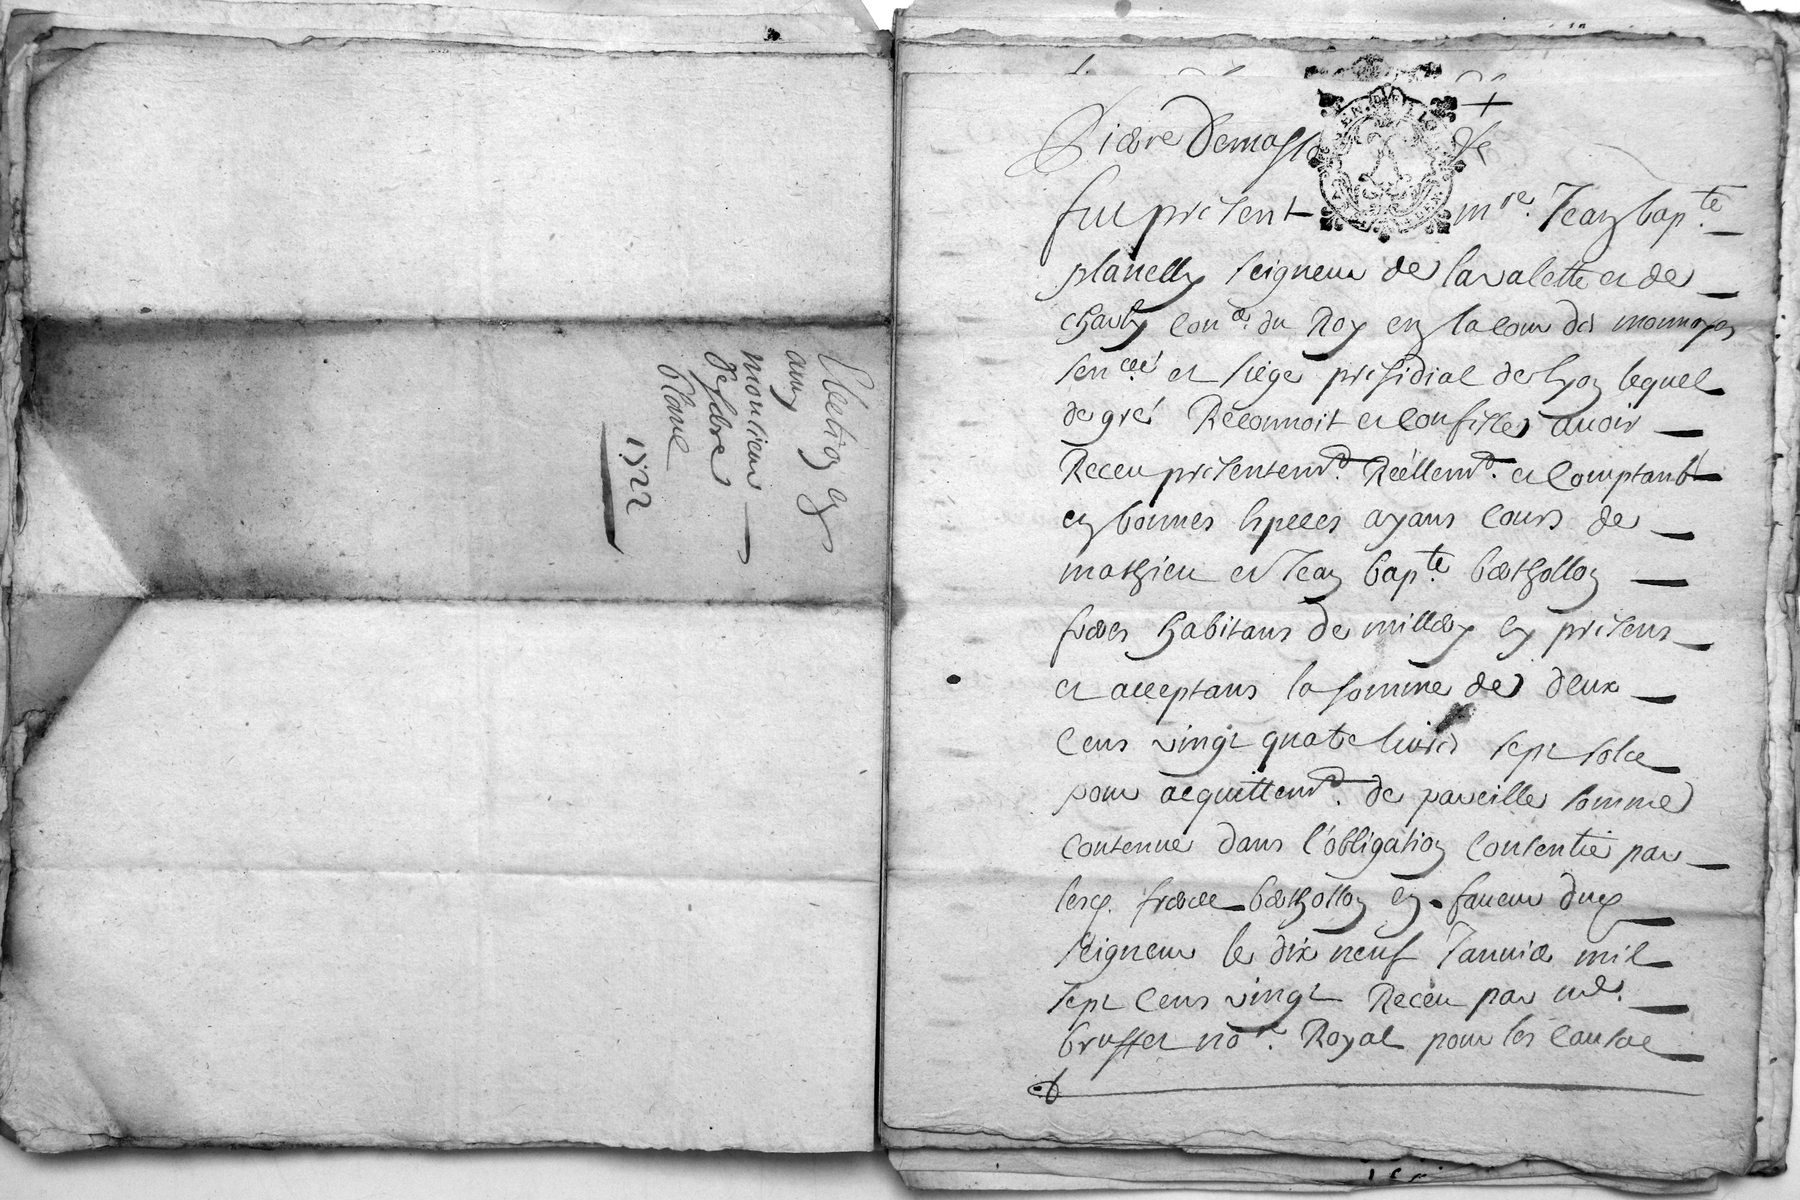 Election en
amy
monsieur
Defabre
blanc
1722
1.
Pierre Demasso
fut present mre. Jean bapte.
planelly seigneur de lavalette et de
charly Coner. du Roy en la cour des monnoyes
senceé et siége presidial de lyon lequel
de gré Reconnoit et confesse avoir
Receu presentemt. Réellemt. et Comptant
en bonnes especes ayans Cours de
mathieu et Jean bapte. bertholLon
freres habitans de millery cy presens
et acceptans la somme de deux
Cens vingt quatre livres sept sols
pour acquittemt. de pareille somme
Contenue dans l'obligation Consentie par
lesd. freres bertholLon en faveur dud
seigneur le dix neuf Janvier mil
sept Cens vingt Receu par me.
brossel nore. Royal pour les causes